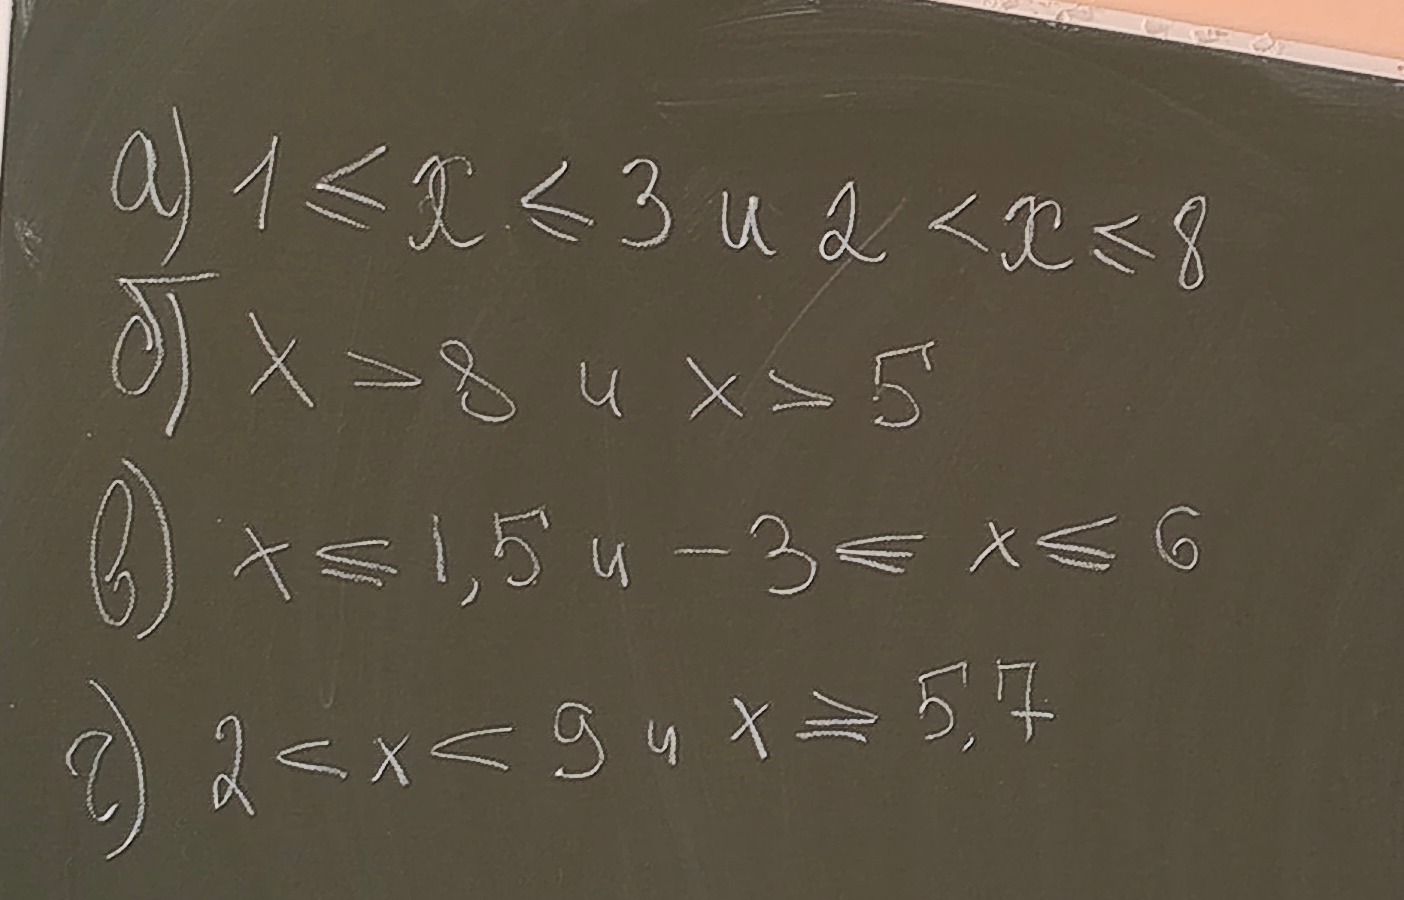 а) 1 ≤ x ≤ 3 и 2 < x ≤ 8
б) x > 8 и x > 5
в) x ≤ 1,5 и -3 ≤ x ≤ 6
г) 2 < x < 9 и x ≥ 5,7